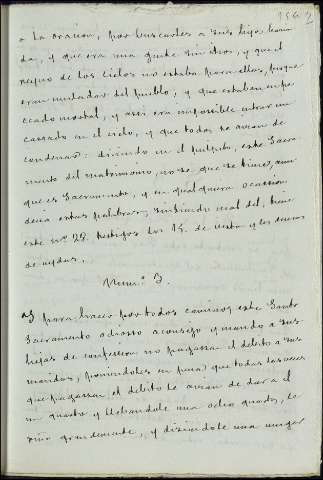 a la oracion, por buscarles a sus hijas
dar, y que era una gente sin dios, y que el
reyno de los cielos no estaba para ellos, porque
eran del pueblo, y que estaban en pe
cado mortal, y assi era impossible entrar un
cassado en el cielo, y que todos se avian de
condenar: diciendo en el pulpito, este Sacra
mento del matrimonio, no se que se tiene, aun
que es Sacramento, y en qualquiera ocassion
decia estas palabras, sintiendo mal del, tiene
este nº 22. testigos los 15. de vista y los demas
de oydas.
Num.º 3.
Y para hacer por todos caminos este Santo
Sacramento odiosso aconsejo y mando a sus
hijas de confession no pagassen el debito a sus
maridos, poniendoles en pena que todas las veces
que pagassen el debito le avian de dar a el
un quarto y llebandole una ocho quartos, le
riño grandemente, y diziendole una muger